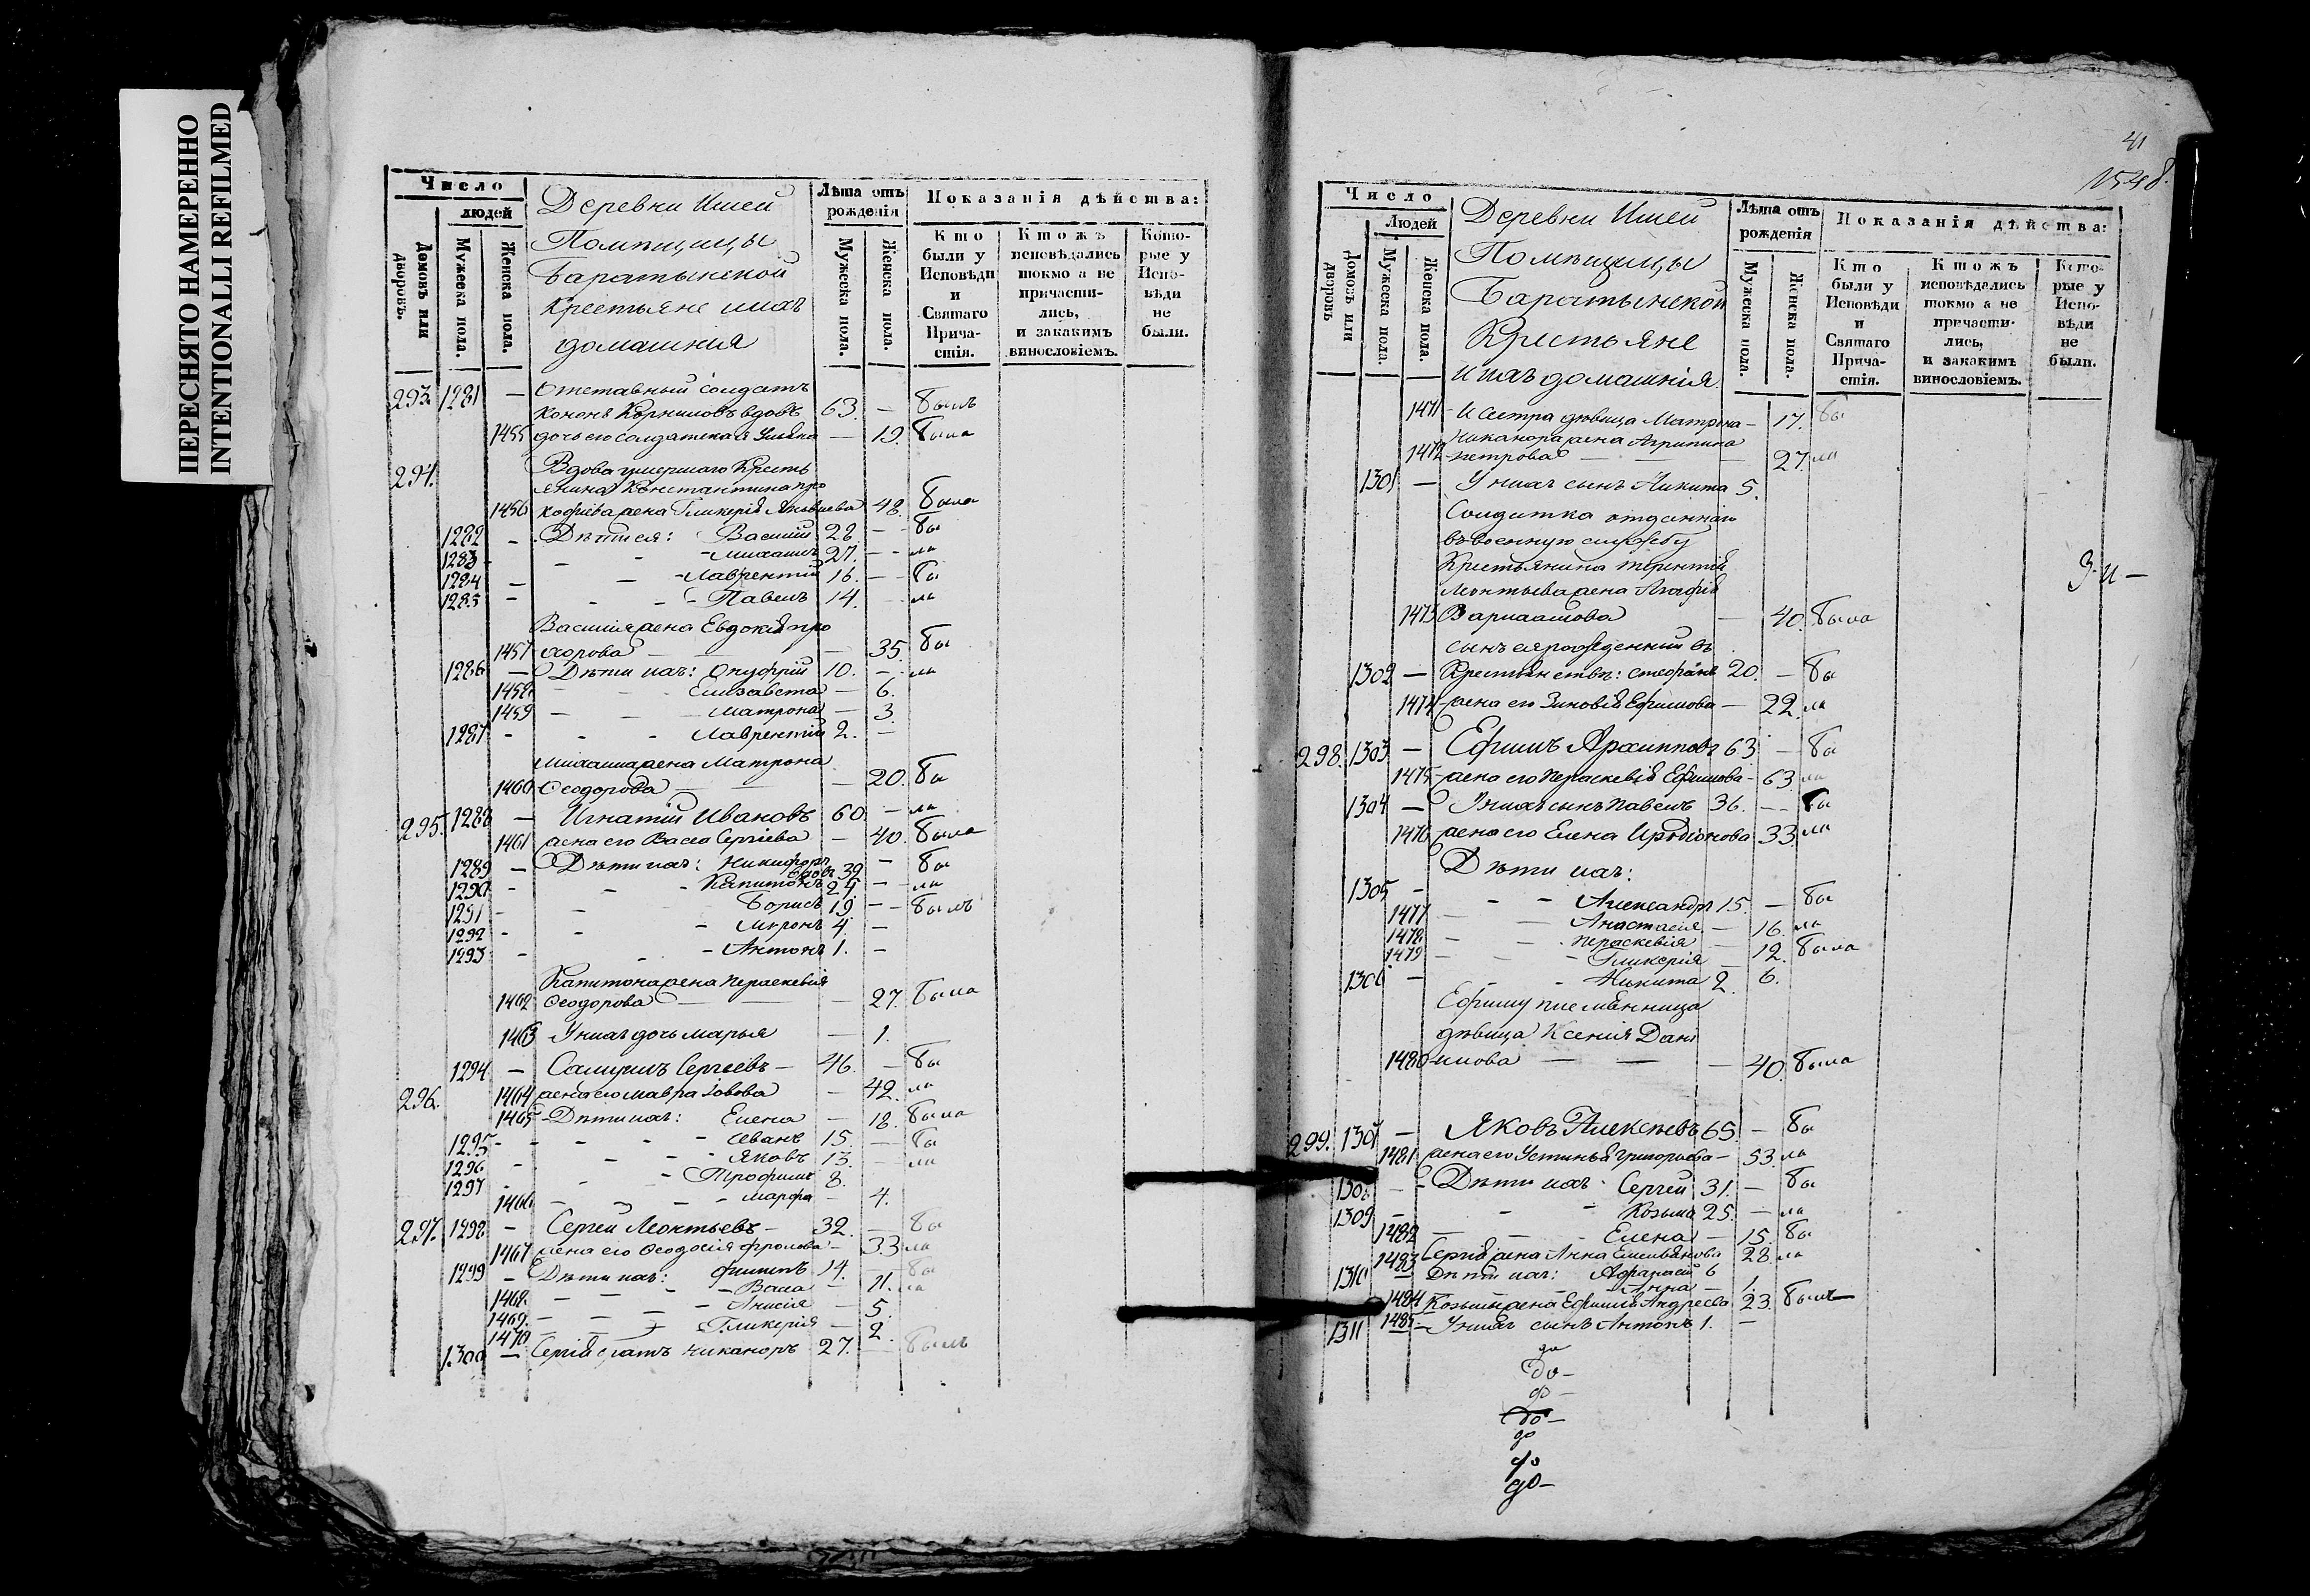 ПЕРЕСНЯТО НАМЕРЕННО
INTENTIONALLI REFILMED
Число
людей
Домовъ или дворовъ.
Мужеска пола.
Женска пола.
Деревни Ишеи
Помѣщицы
Баратынской
Крестьяне ихъ
домашнія
Лѣта отъ рожденія
Мужеска пола.
Женска пола.
Показанія дѣйства:
Кто были у Исповѣди и Святаго Прича-стія.
Ктожъ исповѣдались токмо а не причасти-лись, и закакимъ винословіемъ.
Кото-рые у Испо-вѣди не были.
293. 1281 — Отставный солдатъ
Кононъ Корниловъ вдовъ 63. — былъ
1455 дочь его солдатская — 19. была
294. Вдова умершаго Кресть
янина Константина про
1456 кофьева жена Гликерія Яковлева 48. была
1282 — Дѣти ея: Василій 28. — бы
1283 - - - Михаилъ 27. — ли
1284 — — - Лаврентій 16. — бы
1285 - - - Павелъ 14. — ли
Василія жена Евдокія про
1457 хорова — — 35. бы
1286 — Дѣти ихъ: Онуфрій 10. — ли
1458 — - - Елизавета — 6.
1459 — — Матрона — 3.
1287 - - - Лаврентій 2. —
Михаила жена Матрона
1460 Ѳеодорова — — 20. бы
295. 1288 — Игнатій Ивановъ 60 — ли
1461 жена его Васса Сергіева — 40. была
1289 — Дѣти ихъ: Никифоръ
вдовъ 39 — бы
1290 - - - Капитонъ 29. — ли
1291 - - Борисъ 19. — былъ
1292 - - - Миронъ 4. —
1293 - - - Антонъ 1. —
Капитона жена Параскевія
1462 Ѳеодорова — — 27. была
1463 У нихъ дочь Марья — 1.
1294 — Самуилъ Сергѣевъ — 46. — бы
296. 1464 жена его Мавра Іовова — 42. ли
1465 — Дѣти ихъ: Елена — 18. была
1295 - - - - Іванъ 15. — бы
1296 - - - - Яковъ 13. — ли
1297 - - - Трофимъ 8.
1466 — — - - Марфа — 4.
297. 1298 — Сергей Леонтьевъ — 32. — бы
1467 жена его Ѳеодосія Фролова — 33 ли
1299 — Дѣти ихъ: Филипъ 14. — бы
1468. — — - - Васса — 11. ли
1469. — — — - Анисія — 5.
1470 — — Гликерія — 2.
1300 — Сергія братъ Никаноръ 27. — былъ
41
1548.
Число
Людей
Домовъ или дворовъ
Мужеска пола.
Женска пола.
Деревни Ишеи
Помѣщицы
Баратынской
Крестьяне
и ихъ домашнія
Лѣта отъ рожденія
Мужеска пола.
Женска пола.
Показанія дѣйства:
Кто были у Исповѣди и Святаго Прича-стія.
Ктожъ исповѣдались токмо а не причасти-лись, и закакимъ винословіемъ.
Кото-рые у Испо-вѣди не были.
1471 — И сестра дѣвица Матрона — 17. бы
Никанора жена Агрипина
1472 Петрова — — 27. ли
1301 — У нихъ сынъ Никита 5.
Солдатка отданнаго
въ военную службу
Крестьянина Терентія
Леонтьева жена Агафія
1473 Варлаамова — 40. была
сынъ ея рожденный въ
1302 — Крестьянствѣ: Стефанъ 20. — бы
1474 жена его Зиновія Ефимова — 22. ли
298. 1303 — Ефимъ Архиповъ 63. — бы
1475 — жена его Параскевія Ефимова — 63. ли
1304 — У нихъ сынъ Павелъ 36. — бы
1476 жена его Елена Иродіонова 33. ли
Дѣти ихъ:
1305 - - - Александръ 15. — бы
1477 — — Анастасія — 16. ли
1478 — - Параскевія — 12. была
1479 — — - Гликерія — 6.
1306 — - - Никита 2.
Ефиму племянница
дѣвица Ксенія Дані
1480 илова — — — 40. была
299. 1307 — Яковъ Алексѣевъ 65. — бы
1481 жена его Устинья Григорьева — 53. ли
1308 — Дѣти ихъ: Сергей 31. — бы
1309 — - - Козьма 25. — ли
1482 — — - Елена — 15. бы
1483 Сергія жена Анна Емельянова 28. ли
1310 — Дѣти ихъ: Афанасій 6
1484 - Анна — 1.
1485 Козьмы жена Ефимія Андреева 23. была
1311 — У нихъ сынъ Антонъ 1. —
до
до —
до —
до —
до
до
до —